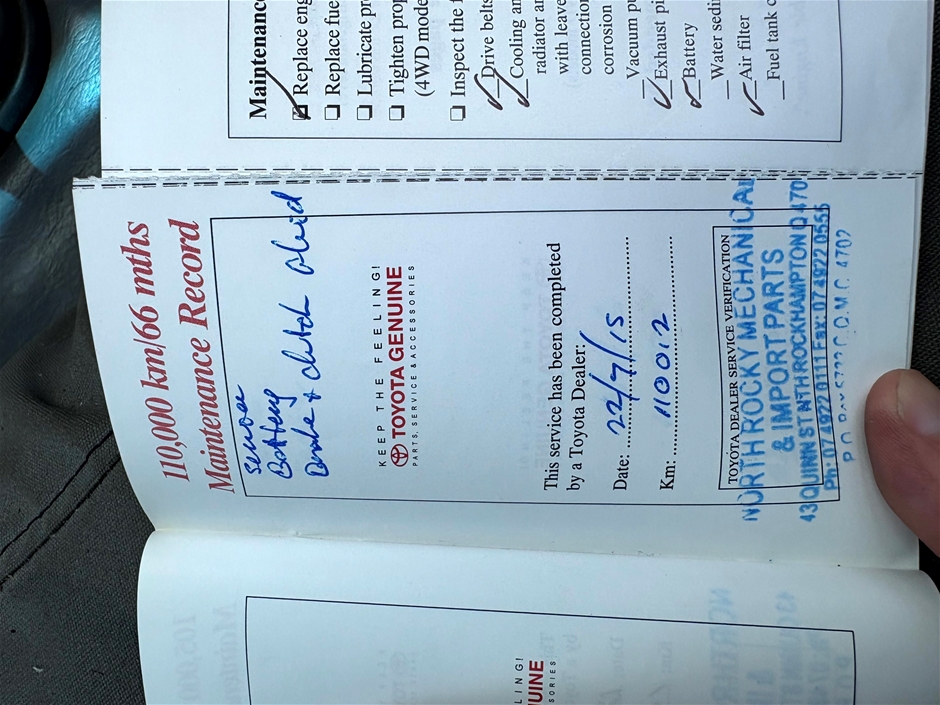 Maintenance
Replace eng
Replace fue
Lubricate pr
Tighten prop
(4WD mode
Inspect the f
Drive belts
Cooling an
radiator an
with leave
connection
corrosion
Vacuum pu
Exhaust pi
Battery
Water sedi
Air filter
Fuel tank c
110,000 km/66 mths
Maintenance Record
Service
Battery
Brake + clutch fluid
KEEP THE FEELING!
TOYOTA GENUINE
PARTS, SERVICE & ACCESSORIES
This service has been completed
by a Toyota Dealer:
Date: 22/7/15
Km: 110012
TOYOTA DEALER SERVICE VERIFICATION
NORTH ROCKY MECHANICAL
& IMPORT PARTS
43 QUINN ST NTH ROCKHAMPTON Q 470
Ph: 07 4922 0111 Fax: 07 4922 0555
P.O. C.Q.M.C. 4702
LING!
UINE
SORIES